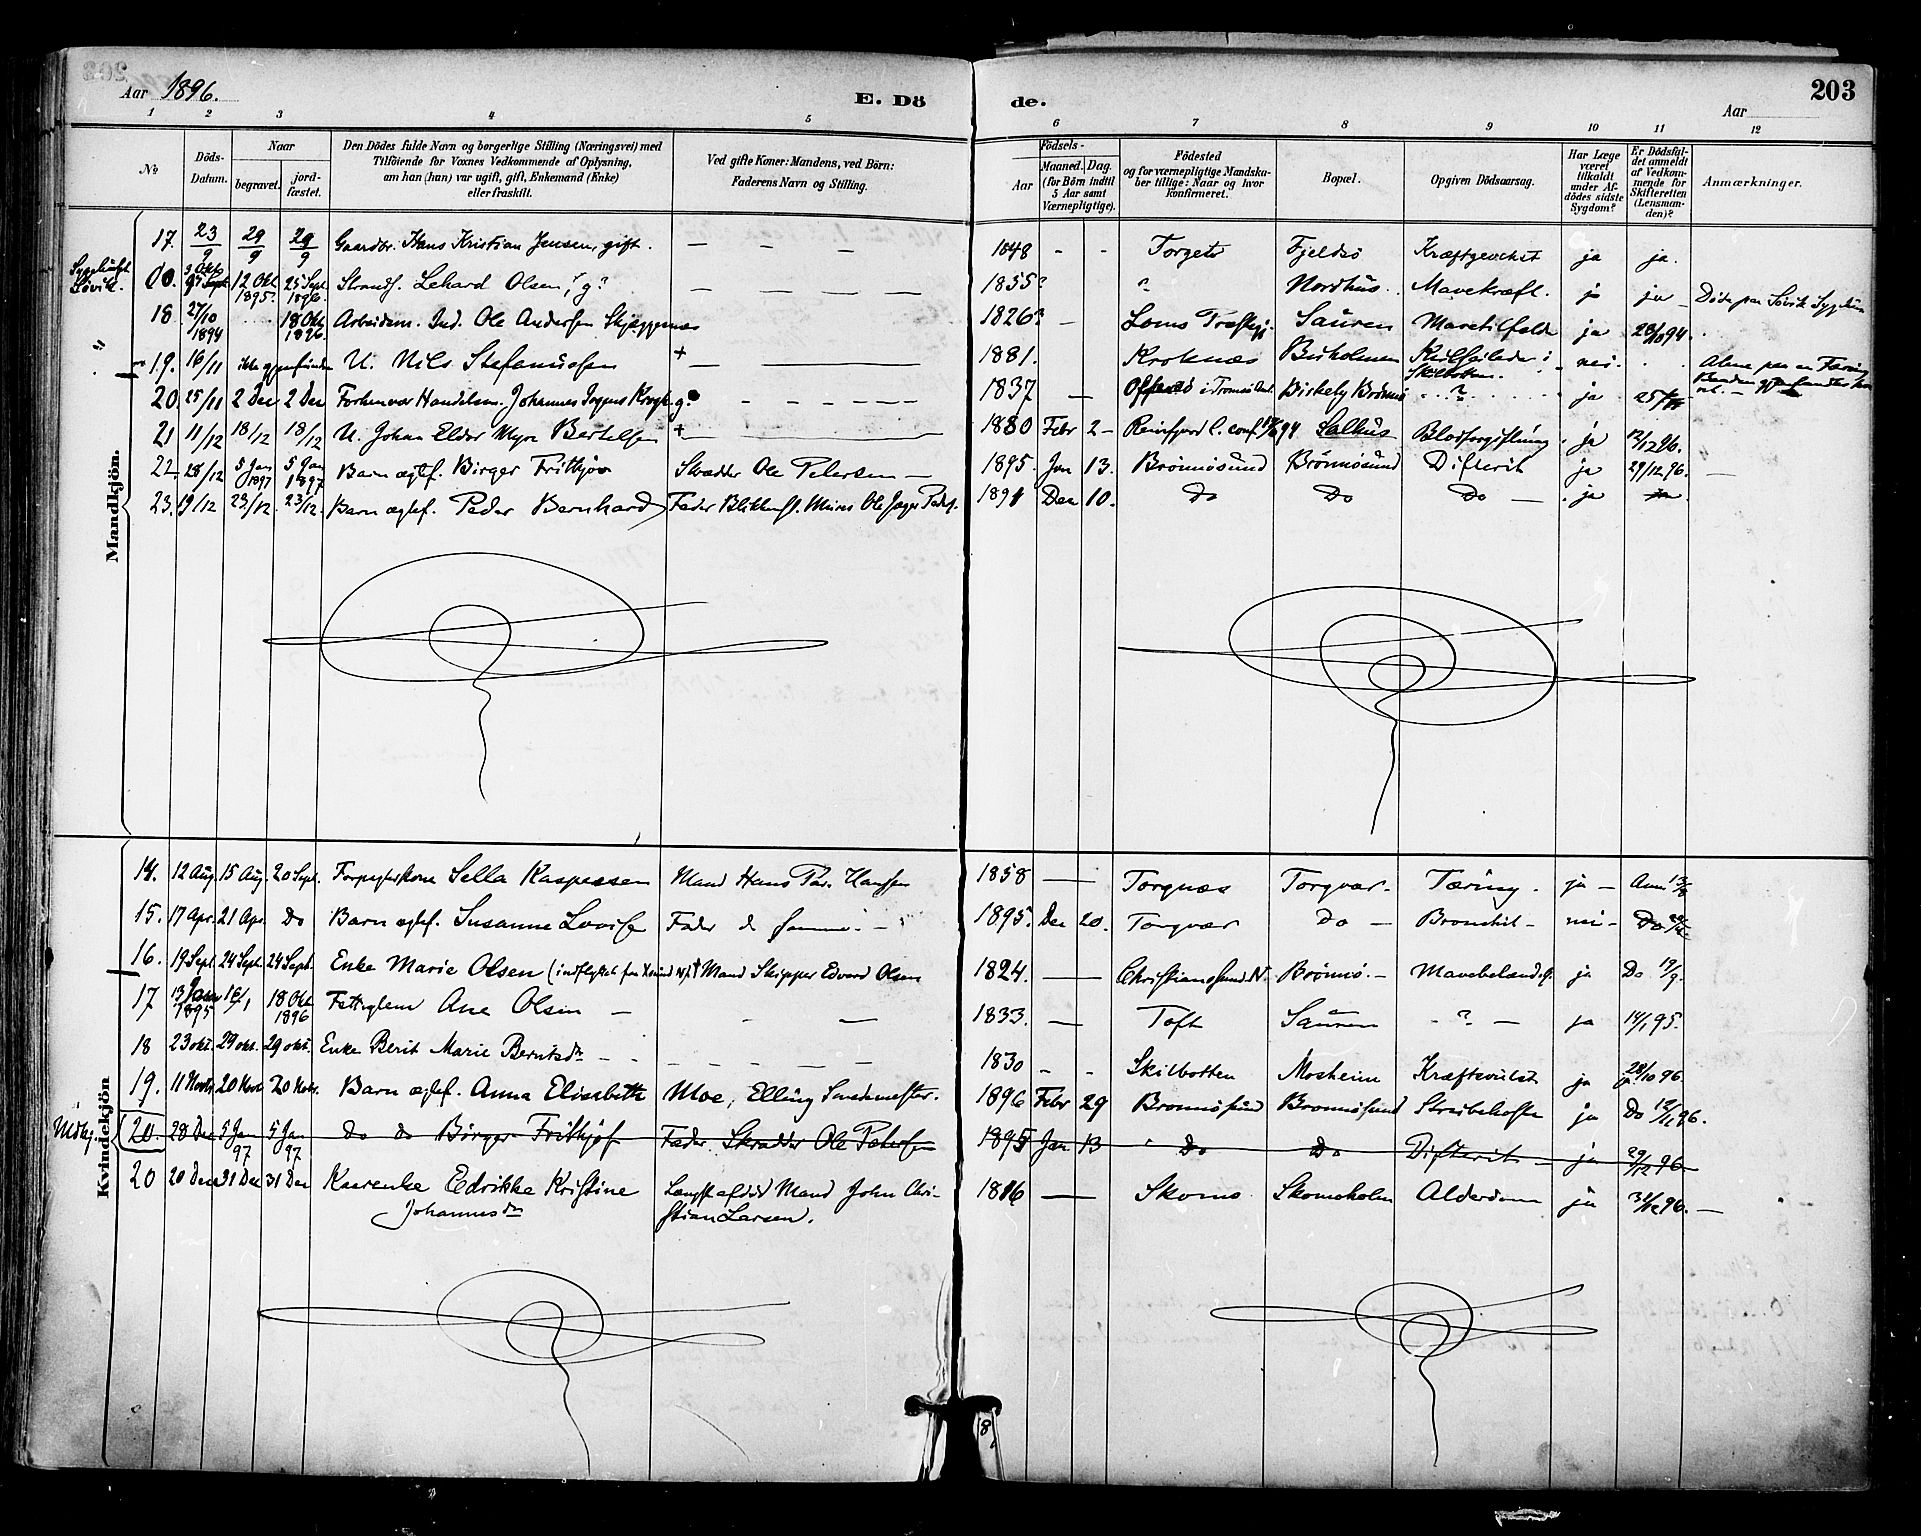 Aar 1896.
E. Dö
de.
203
Aar
1 2 3 4 5 6 7 8 9 10 11 12
No
Döds-Datum.
Naar
begravet.
jord-fæstet.
Den Dödes fulde Navn og borgerlige Stilling (Næringsvei) med
Tilföiende for Voxnes Vedkommende af Oplysning,
om han (hun) var ugift, gift, Enkemand (Enke)
eller fraskilt.
Ved gifte Koner: Mandens, ved Börn:
Faderens Navn og Stilling.
Födsels-
Aar
Maaned. Dag.
(for Börn indtil
5 Aar samt
Værnepligtige).
Födested
og for værnepligtige Mandska-
ber tillige: Naar og hvor
konfirmeret.
Bopæl.
Opgiven Dödsaarsag.
Har Læge
været
tilkaldt
under Af-
dödes sidste
Sygdom?
Er Dödsfal-
det anmeldt
af Vedkom-
mende for
Skifteretten
(Lensman-
den)?
Anmærkninger.
Mandkjön.
17. 23/9 29/9 29/9 Gaardbr. Hans Kristian Jensen, gift. — — — — — 1848 - - Torget Fjeldsö Kræftsvulst ja ja.
3 Okt 95 12 Okt 1895. 25 Sept 1896. Strands. Lehard Olsen, g? — — — — — 1835? " Nordhus. Mavekræft. ja ja — Döde paa Sövik Sygehus
18 27/10 1894 18 Okt 1896. Arbeidsm. Ind. Ole Andersen Skjæggenes 1826? — Loms Præstegj. Sauren Mavetilfælde ja 28/10 94.
19. 16/11 ikke gjenfunden U. Nils Stefanussen + 1881. Kroknes Buholmen Kulseilede i Skilbotten. nei. Alene paa en Færing
20. 25/11 2 Dec 2 Dec Forhenvær Handelsm. Johannes Krogh g. — — — — 1837 — i Tromsö Birkely Brönnö ? ja 25/11
21 11/12 18/12 18/12 U. Johan Eldor Myre Bertelsen + 1880 Febr 2 — Reinfjord C. conf. 94 Salhus Blodforgiftning ja 12/12 96.
22. 28/12 5 Jan 1897 5 Jan 1897 Barn ægtef. Birger Frithjov Skrædder Ole Petersen — 1895. Jan 13. Brönnösund Brönnösund Difterit ja 29/12 96. —
23. 19/12 23/12. 23/12. Barn ægtef. Peder Bernhard Fader Blikkensl. Ole Peders. 1891 Dec 10. Do Do Do — ja ja
Kvindekjön
14. 12 Aug. 15 Aug. 20 Sept. Forpagterkone Sella Kaspersen Mand Hans Hansen 1858 — Torgnes Torgvær. Tæring. ja — Anm. 13/8
15. 17 Apr. 21 Apr. Do Barn ægtef. Susanne Lovise Fader d. samme — 1895. Dec 20. Torgvær Do — Bronchit — nei — Do
16. 19 Sept. 24 Sept. 24 Sept. Enke Marie Olsen (indflyttet fra Xsund N) Mand Skipper Edvard Olsen 1824. — Christianssund N. Brönnö. — ja Do 19/9.
17 13 Janr 1895 16/1 18 Okt 1896 Fattiglem Ane Olsen — — — 1833. — Toft Sauren ? — ja 14/1 95.
18 23 okt. 29 okt. 29 okt. Enke Berit Marie Berntsdr — — — — 1830 - - Skilbotten Mosheim Kræftsvulst ja 28/10 96.
19. 11 Novbr 20 Novbr 20 Novbr. Barn ægtef. Anna Elisabeth Moe, Elling Smedemester. 1896 Febr 29 Brönnösund Brönnösund Strubehoste ja Do 12/11 96.
20. 28 Dec 5 Jan 97 5 Jan 97 Do do Birger Frithjof Fader Skrædder Ole Petersen 1895 Jan 13 " Do Do Difterit — ja 29/12 96 —
20 20 Dec 31 Dec 31 Dec Kaarenke Edrikke Kristine Johannesdr Længst afdöd Mand John Chri-
stian Larsen. 1816 — Skomo Skomoholm Alderdom ja 31/12 96. —